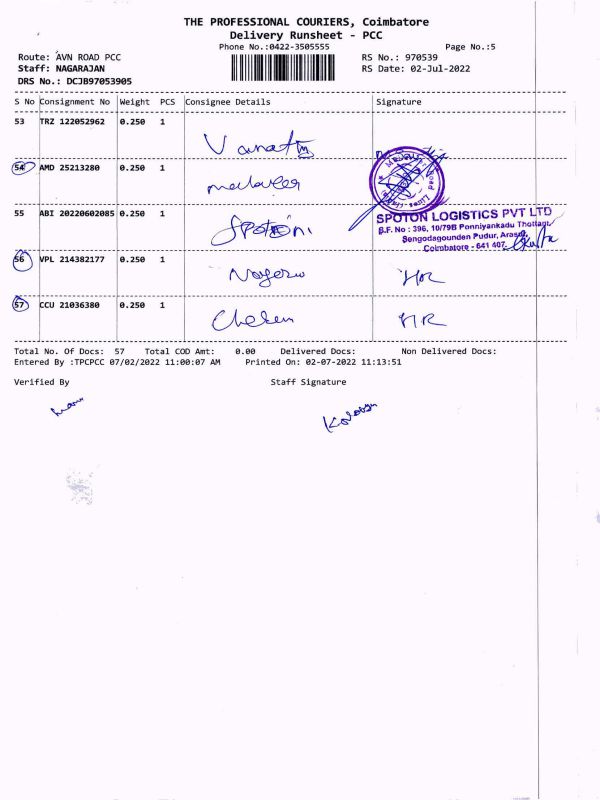 THE PROFESSIONAL COURIERS, Coimbatore
Delivery Runsheet - PCC
Phone No.:0422-3505555 Page No.:5
Route: AVN ROAD PCC RS No.: 970539
Staff: NAGARAJAN RS Date: 02-Jul-2022
DRS No.: DCJB97053905
S No Consignment No Weight PCS Consignee Details Signature
53 TRZ 122052962 0.250 1
54 AMD 25213280 0.250 1
55 ABI 20220602085 0.250 1
SPOTON LOGISTICS PVT LTD
S.F. No : 396, 10/79B Ponniyankadu Thottam,
Sengodagounden Pudur, Arasur,
Coimbatore - 641 407.
56 VPL 214382177 0.250 1
57 CCU 21036380 0.250 1
Total No. Of Docs: 57 Total COD Amt: 0.00 Delivered Docs: Non Delivered Docs:
Entered By :TPCPCC 07/02/2022 11:00:07 AM Printed On: 02-07-2022 11:13:51
Verified By Staff Signature